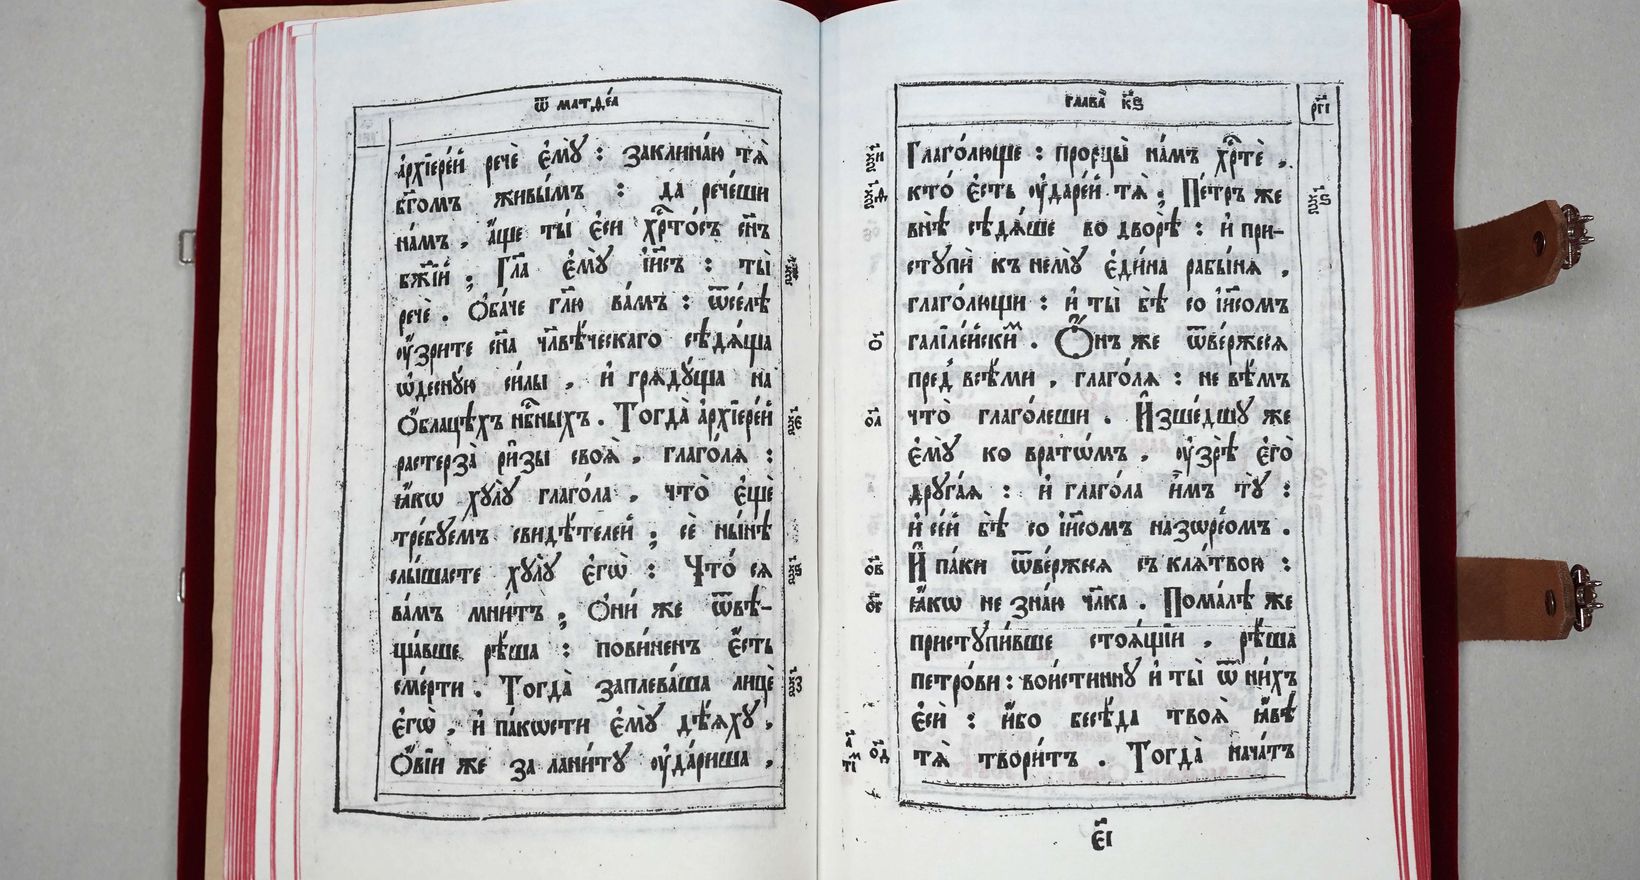 ѿ матѳе́а
а҆рхїере́й речѐ є҆мꙋ̀ : заклина́ю тѧ̀
бг҃омъ живы́мъ : да рече́ши
на́мъ , а҆́ще ты́ є҆си хрⷭ҇то́съ сн҃ъ
бж҃їй ; Гл҃а є҆мꙋ̀ і҆и҃съ : ты̀
речѐ . Ѻ҆ба́че гл҃ю ва́мъ : ѿсе́лѣ
оу҆́зрите сн҃а чл҃вѣ́ческаго сѣдѧ́ща
ѡ҆деснꙋ́ю си́лы , и҆ грѧдꙋ́ща на
Ѻ҆́блацѣхъ нбⷭ҇ныхъ . Тогда̀ а҆рхїере́й
растерза̀ ри́зы своѧ̀ , глаго́лѧ :
ꙗ҆́кѡ хꙋлꙋ̀ глаго́ла , что̀ є҆щѐ
тре́бꙋемъ свидѣ́телей ; сѐ ны́нѣ
слы́шасте хꙋлꙋ̀ є҆гѡ̀ : Что́ сѧ
ва́мъ мни́тъ ; Ѻ҆ни́ же ѿвѣ-
ща́вше рѣ́ша : пови́ненъ є҆́сть
сме́рти . Тогда̀ заплева́ша лицѐ
є҆гѡ̀ , и҆ па́кѡсти є҆мꙋ̀ дѣ́ѧхꙋ ,
Ѻ҆́вїи же за лани́тꙋ оу҆да́риша ,
глава̀ к҃ѕ
рг҃і
Глаго́люще : прорцы̀ на́мъ хрⷭ҇тѐ ,
кто́ є҆сть оу҆даре́й тѧ̀ ; Пе́тръ же
внѣ̀ сѣдѧ́ше во дворѣ̀ : и҆ при-
стꙋпѝ къ немꙋ̀ є҆ди́на рабы́нѧ ,
глаго́лющи : и҆ ты̀ бѣ̀ со і҆и҃сомъ
галїле́йскиⷨ . Ѻ҆́нъ же ѿве́ржесѧ
преⷣ всѣ́ми , глаго́лѧ : не вѣ́мъ
что̀ глаго́леши . И҆зше́дшꙋ же
є҆мꙋ̀ ко вратѡ́мъ , оу҆зрѣ̀ є҆го̀
дрꙋга́ѧ : и҆ глаго́ла и҆̀мъ тꙋ̀ :
и҆ се́й бѣ̀ со і҆и҃сомъ назѡре́омъ .
И҆ па́ки ѿве́ржесѧ съ клѧ́твою :
ꙗ҆́кѡ не зна́ю чл҃ка . Пома́лѣ же
пристꙋпи́вше стоѧ́щїи , рѣ́ша
петро́ви : вои́стиннꙋ и҆ ты̀ ѿ ни́хъ
є҆сѝ : и҆́бо бесѣ́да твоѧ̀ ꙗ҆́вѣ
тѧ̀ твори́тъ . Тогда̀ нача́тъ
є҃і